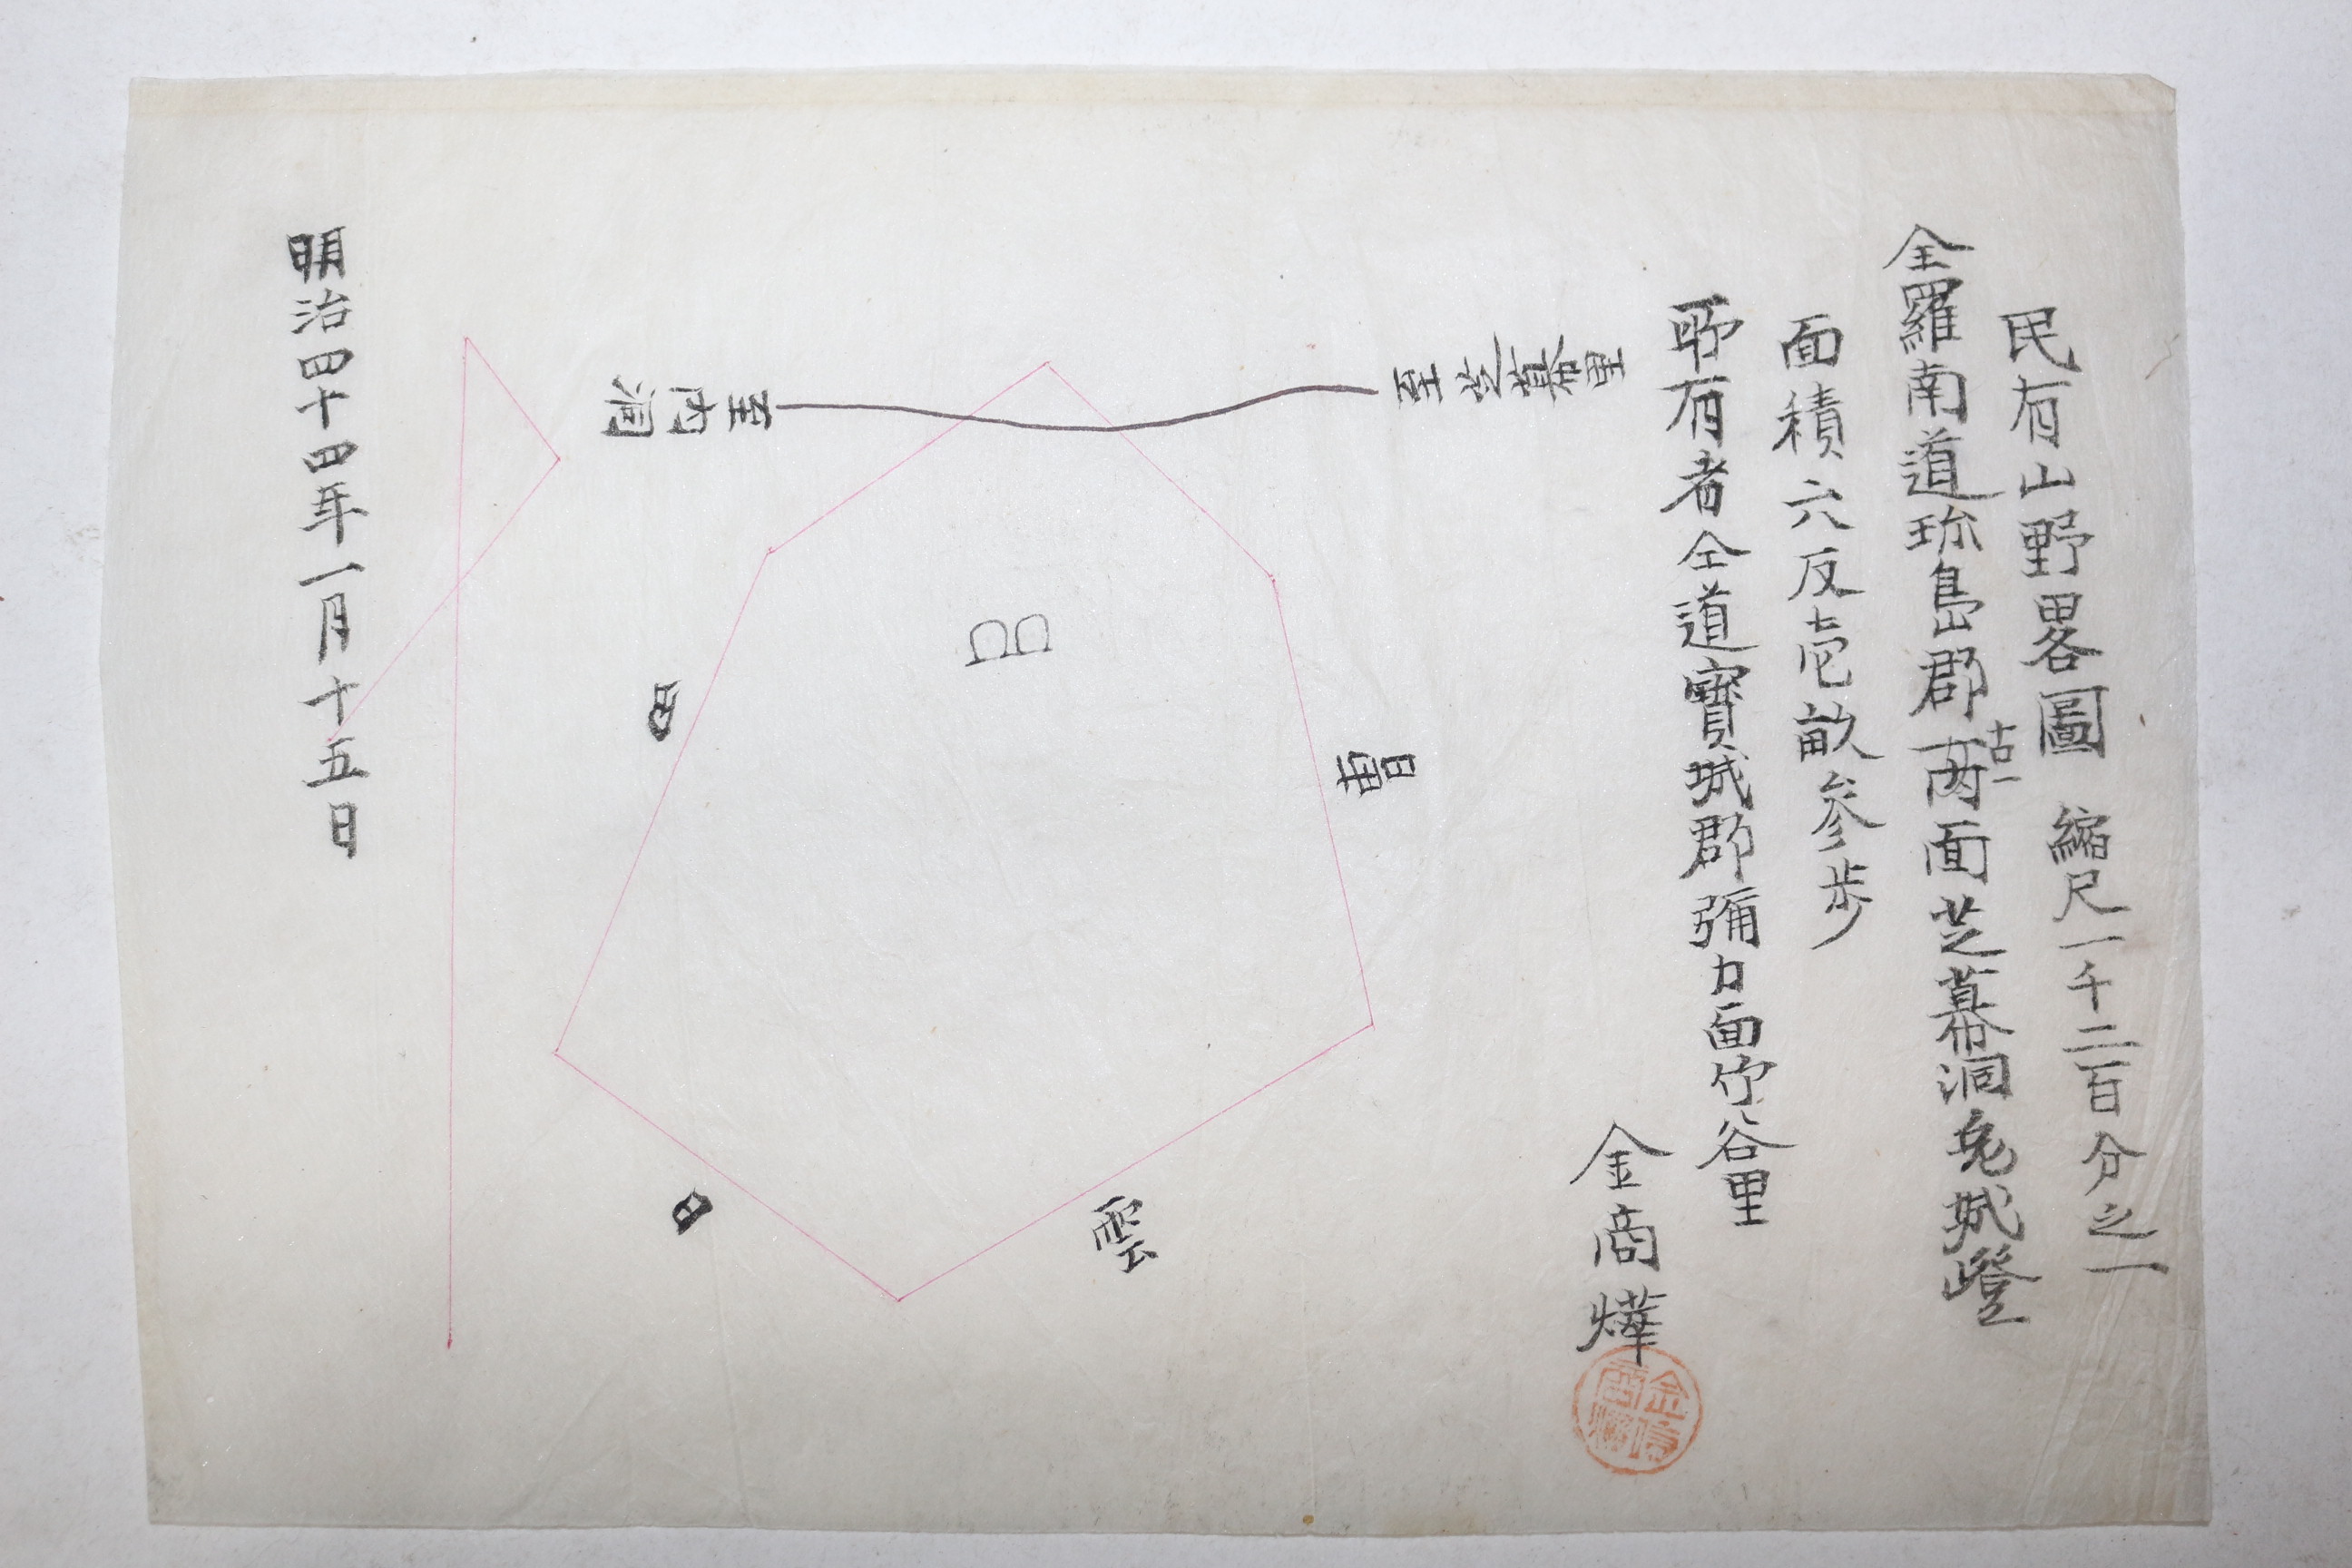 民有山野畧圖 縮尺一千二百分之一
全羅南道珎島郡古一面芝幕洞兎城嶝
面積六反壱畝參步
所有者仝道寶城郡彌力面竹谷里
金商燁
至芝幕里
至內洞
山
田
畓
田
雲
明治四十四年一月十五日